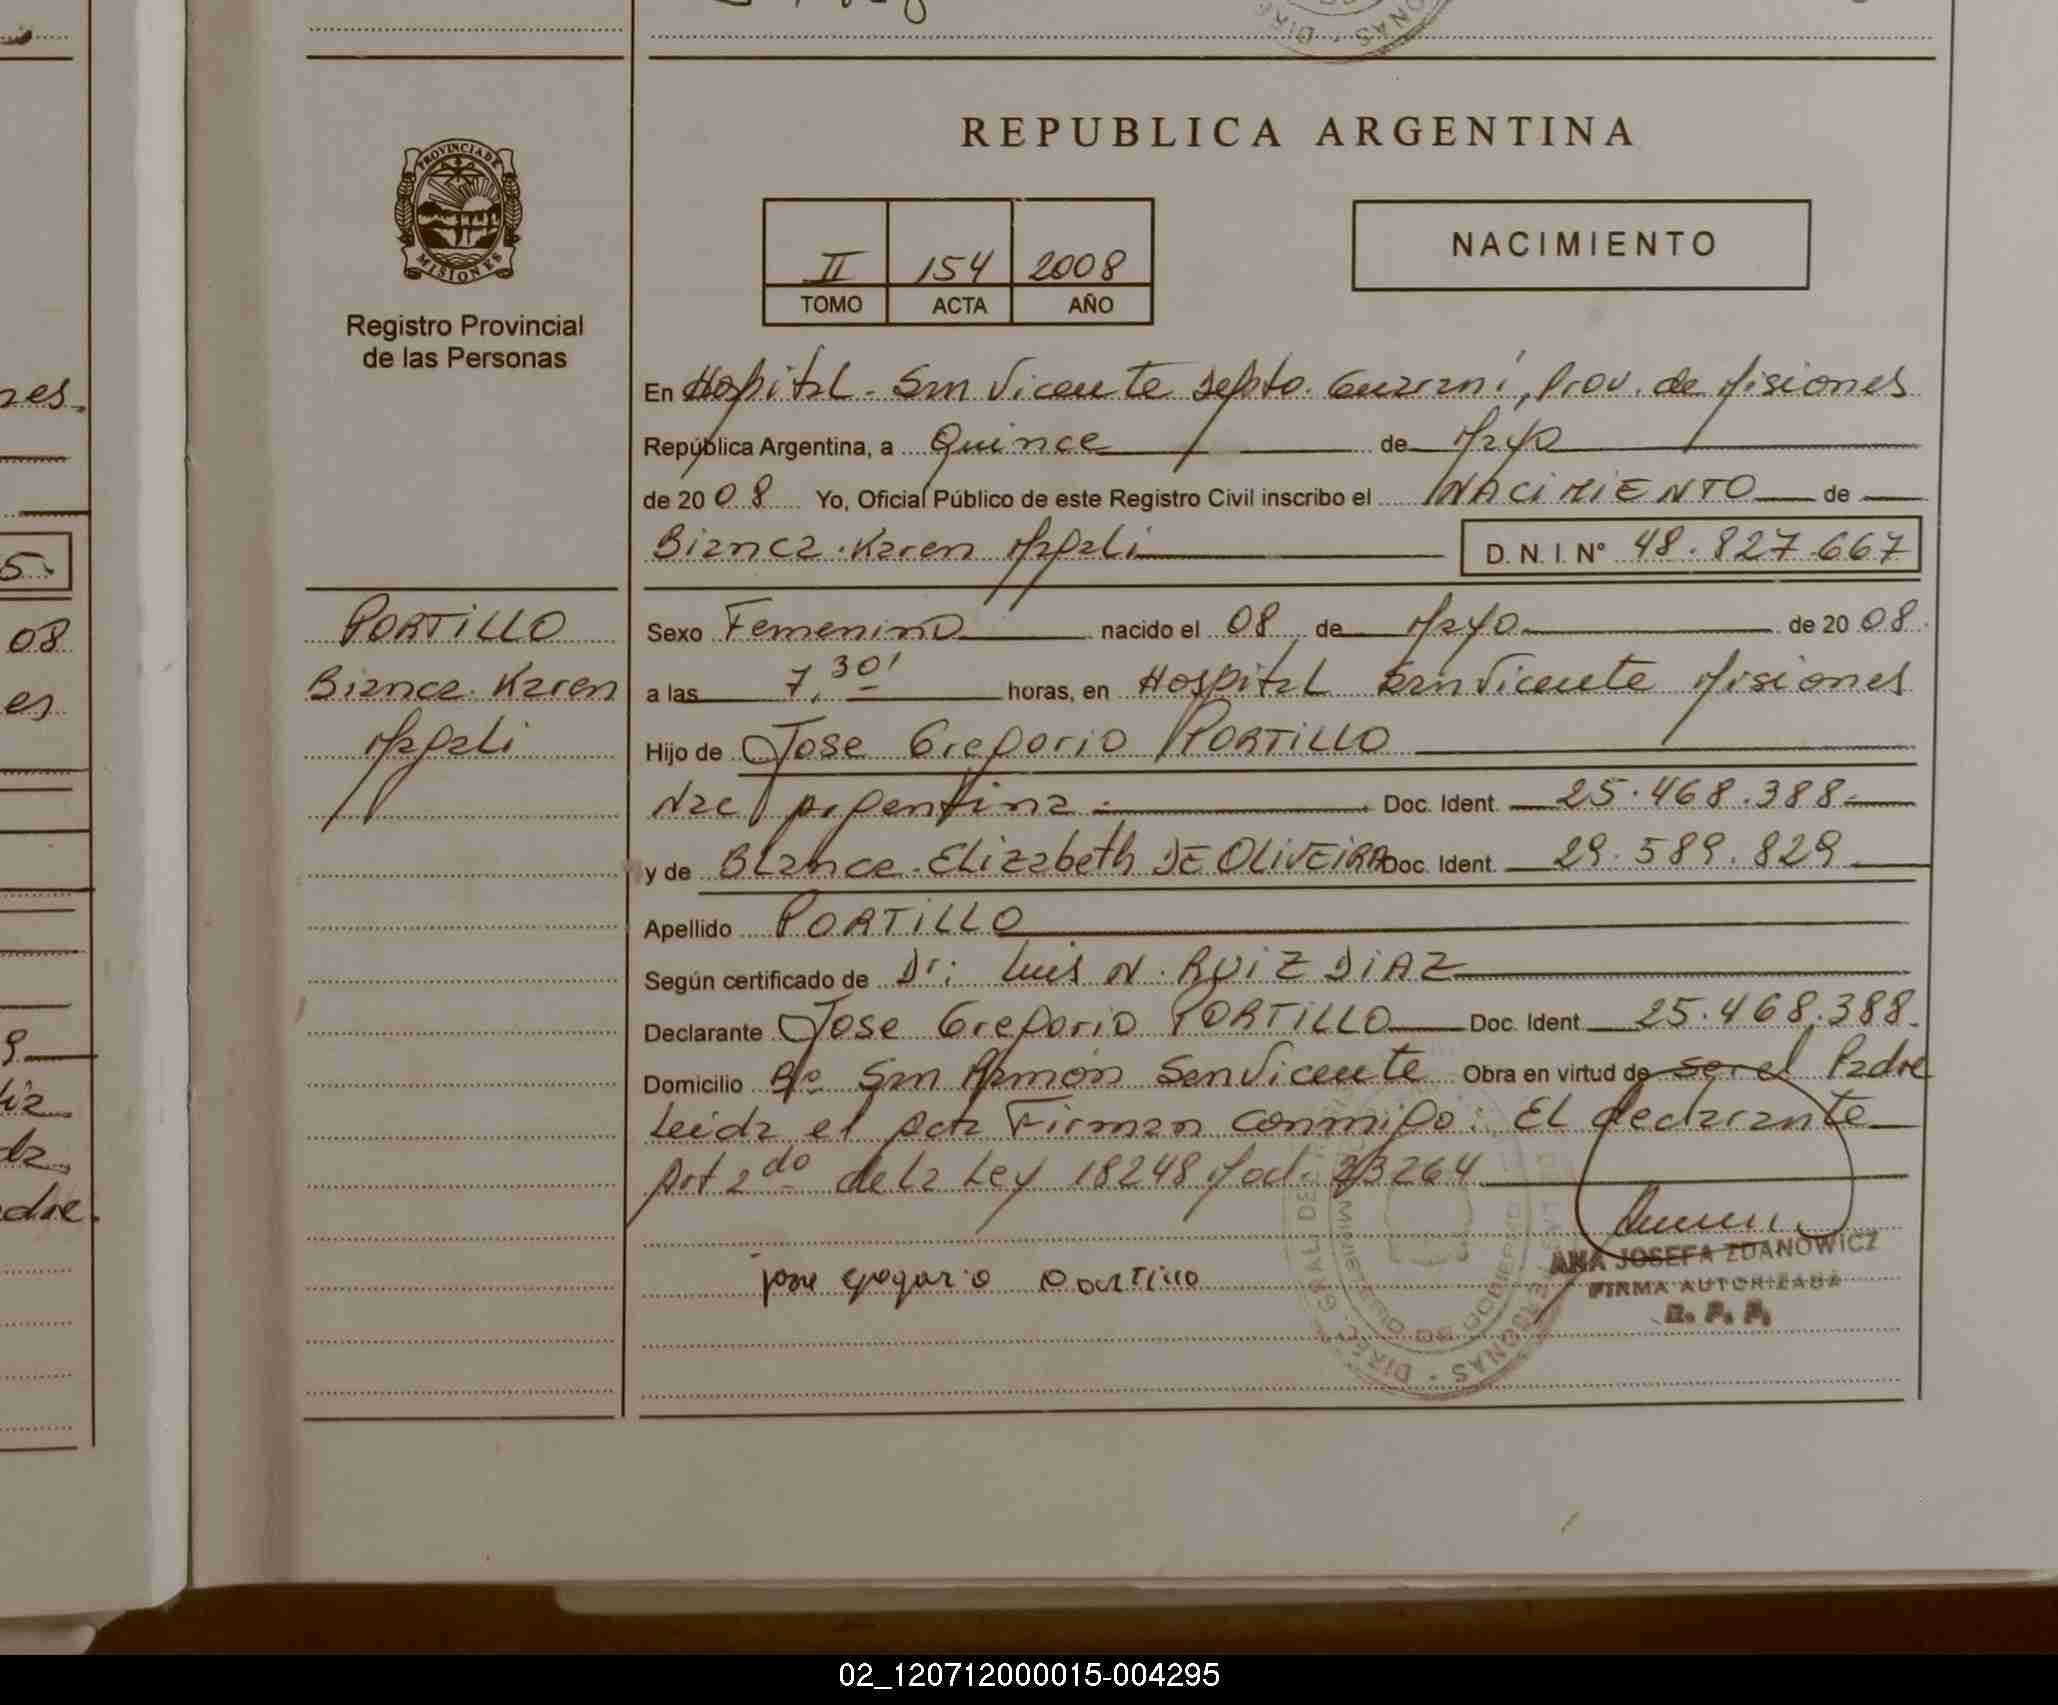 REPUBLICA ARGENTINA
PROVINCIA DE
MISIONES
Registro Provincial
de las Personas
II 154 2008
TOMO ACTA AÑO
NACIMIENTO
En Hospital - San Vicente Depto. Guaraní, Prov. de Misiones
República Argentina, a Quince de Mayo
de 2008 Yo, Oficial Público de este Registro Civil inscribo el NACIMIENTO de
Bianca Karen Magali D. N. I. N° 48.827.667
PORTILLO
Bianca Karen
Magali
Sexo Femenino nacido el 08 de Mayo de 2008
a las 7,30' horas, en Hospital San Vicente Misiones
Hijo de Jose Gregorio PORTILLO
Nac Argentina Doc. Ident. 25.468.388
y de Blanca Elizabeth DE OLIVEIRA Doc. Ident. 29.589.829
Apellido PORTILLO
Según certificado de Dr: Luis N. RUIZ DIAZ
Declarante Jose Gregorio PORTILLO Doc. Ident 25.468.388.
Domicilio Bº San Ramón San Vicente Obra en virtud de ser el Padre
Leida el acta Firman conmigo: EL declarante
Art 2do de la Ley 18248 Mod. 23264
jose gregario Portillo
ANA JOSEFA ZDANOWICZ
FIRMA AUTORIZADA
R. P. P.
02_120712000015-004295